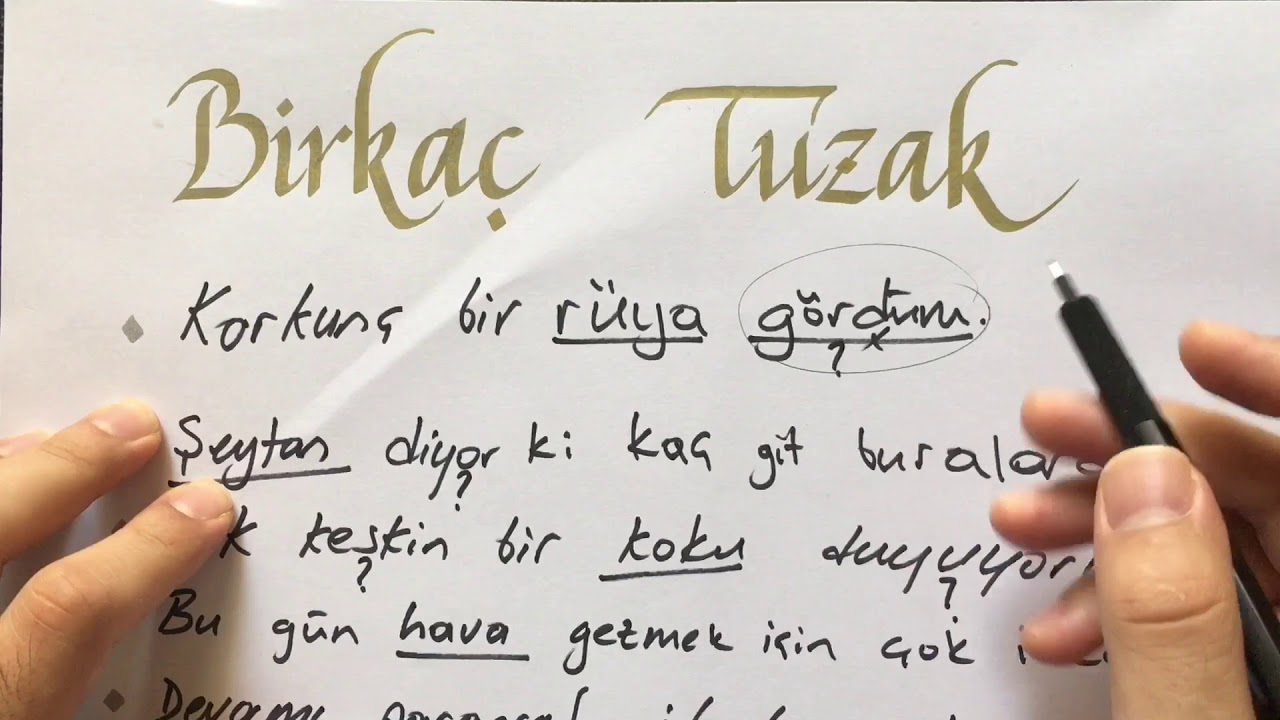 Birkaç Tuzak
Korkunç bir rüya gördüm.
? x
Şeytan diyor ki kaç git
?
keskin bir koku duyuyor
? ?
Bu gün hava gezmek için çok
Devamı